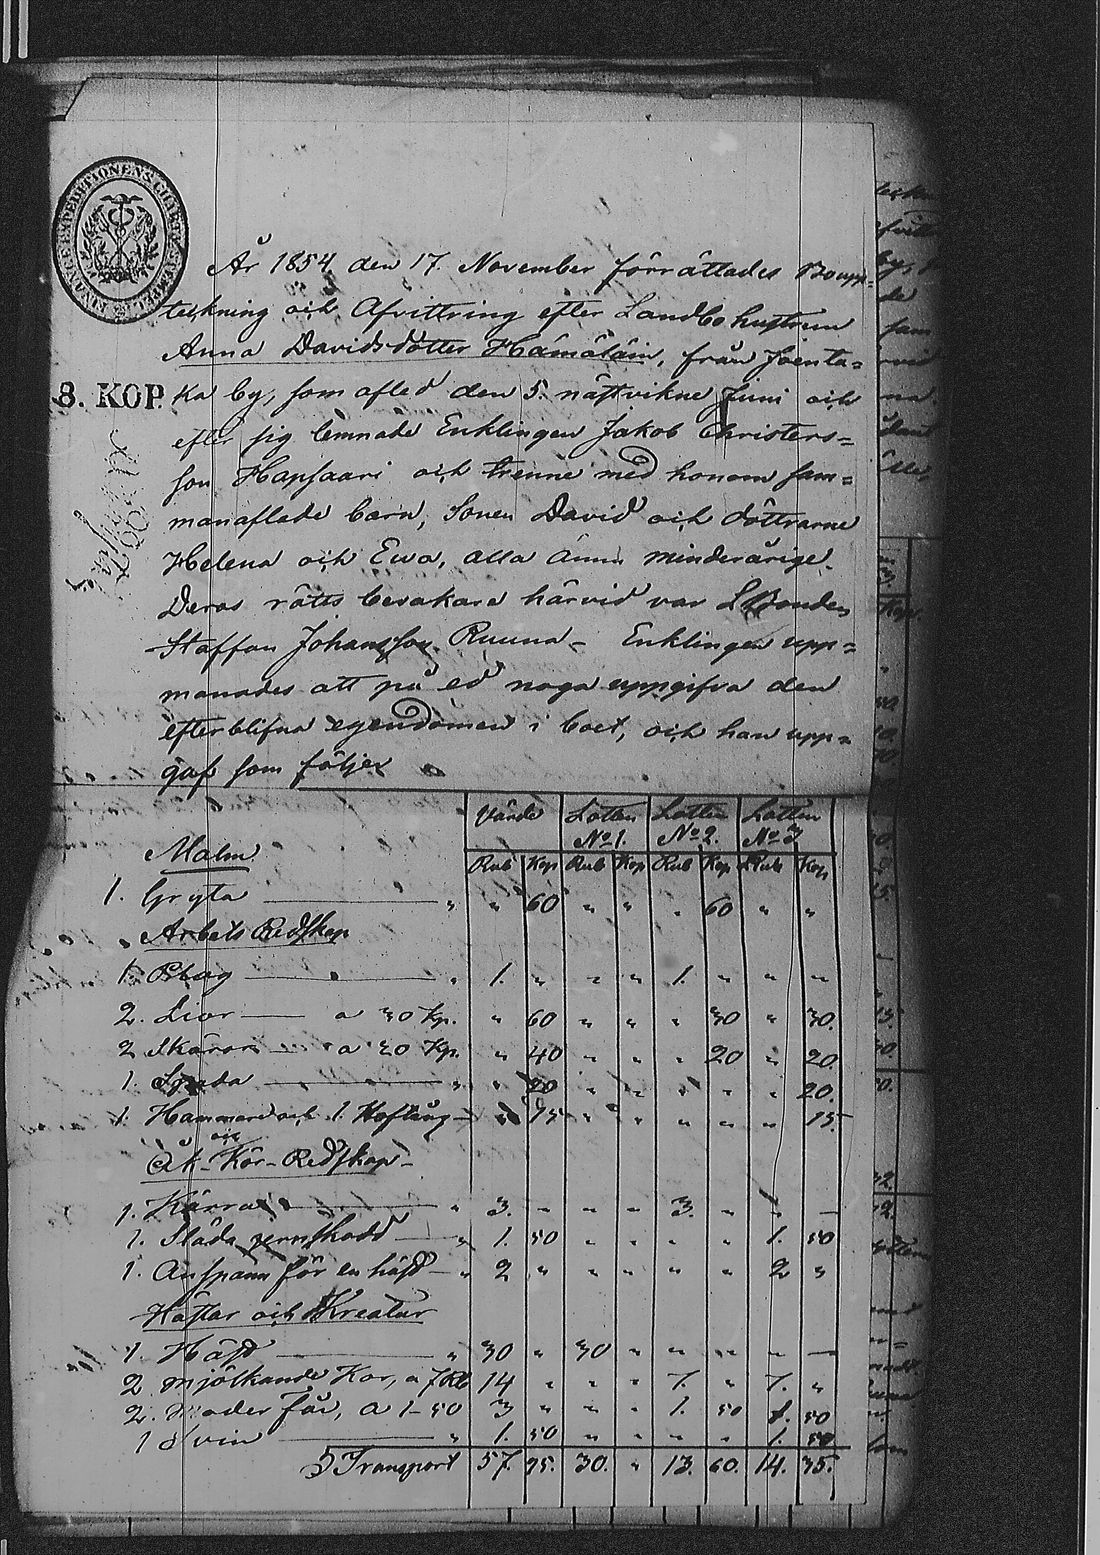 FINANCE EXPEDITIONENS CHARTÆ STEMPEL
År 1854 den 17. November förrättades Boupp=
teckning och Afvittring efter Landbohustrun
Anna Davidsdotter Hämäläin, från Joenta=
8. KOP.
ka by, som afled den 5. nästvikne Juni och
efter sig lemnade Enklingen Jakob Christers=
son Hapsaari och trenne med honom sam=
manaflade barn, Sonen David och döttrarne
Helena och Ewa, alla ännu minderårige.
Deras rätts bevakare härvid var LBonden
Staffan Johansson Ruuna – Enklingen upp=
manades att på ed noga uppgifva den
efterblifna egendomen i boet, och han upp=
gaf som följer
Värde Lotten No 1. Lotten No 2. Lotten No 3
Malm Rub Kop Rub Kop Rub Kop Rub Kop
1. Gryta — „ „ 60 „ „ „ 60 „ „
Arbets Redskap
1. Plog — „ 1. „ „ „ 1. „ „ „
2. Liar — a 30 Kp. „ 60 „ „ „ 30 „ 30.
2 Skäror — a 20 Kp. „ 40 „ „ „ 20 „ 20.
1. Spada — „ „ 20 „ „ „ „ „ 20.
1. Hammare och 1. Hoftång — „ 15 „ „ „ „ „ 15.
Åk- och Kör-Redskap-
1. Kärra — „ 3. „ „ „ 3. „ „ —
1. Släda jernskodd — „ 1. 50 „ „ „ „ 1. 50
1. Anspann för en häst — „ 2 „ „ „ „ „ 2 „
Hästar och Kreatur
1. Häst — „ 30 „ 30 „ „ „ „ —
2 mjölkande Kor, a 7 Rb 14 „ „ „ 7. „ 7. „
2. Moder får, a 1-50 3 „ „ „ 1. 50 1. 50
1 Svin — „ 1. 50 „ „ „ „ 1. 50
Transport 57. 95. 30. „ 13. 60. 14. 35.